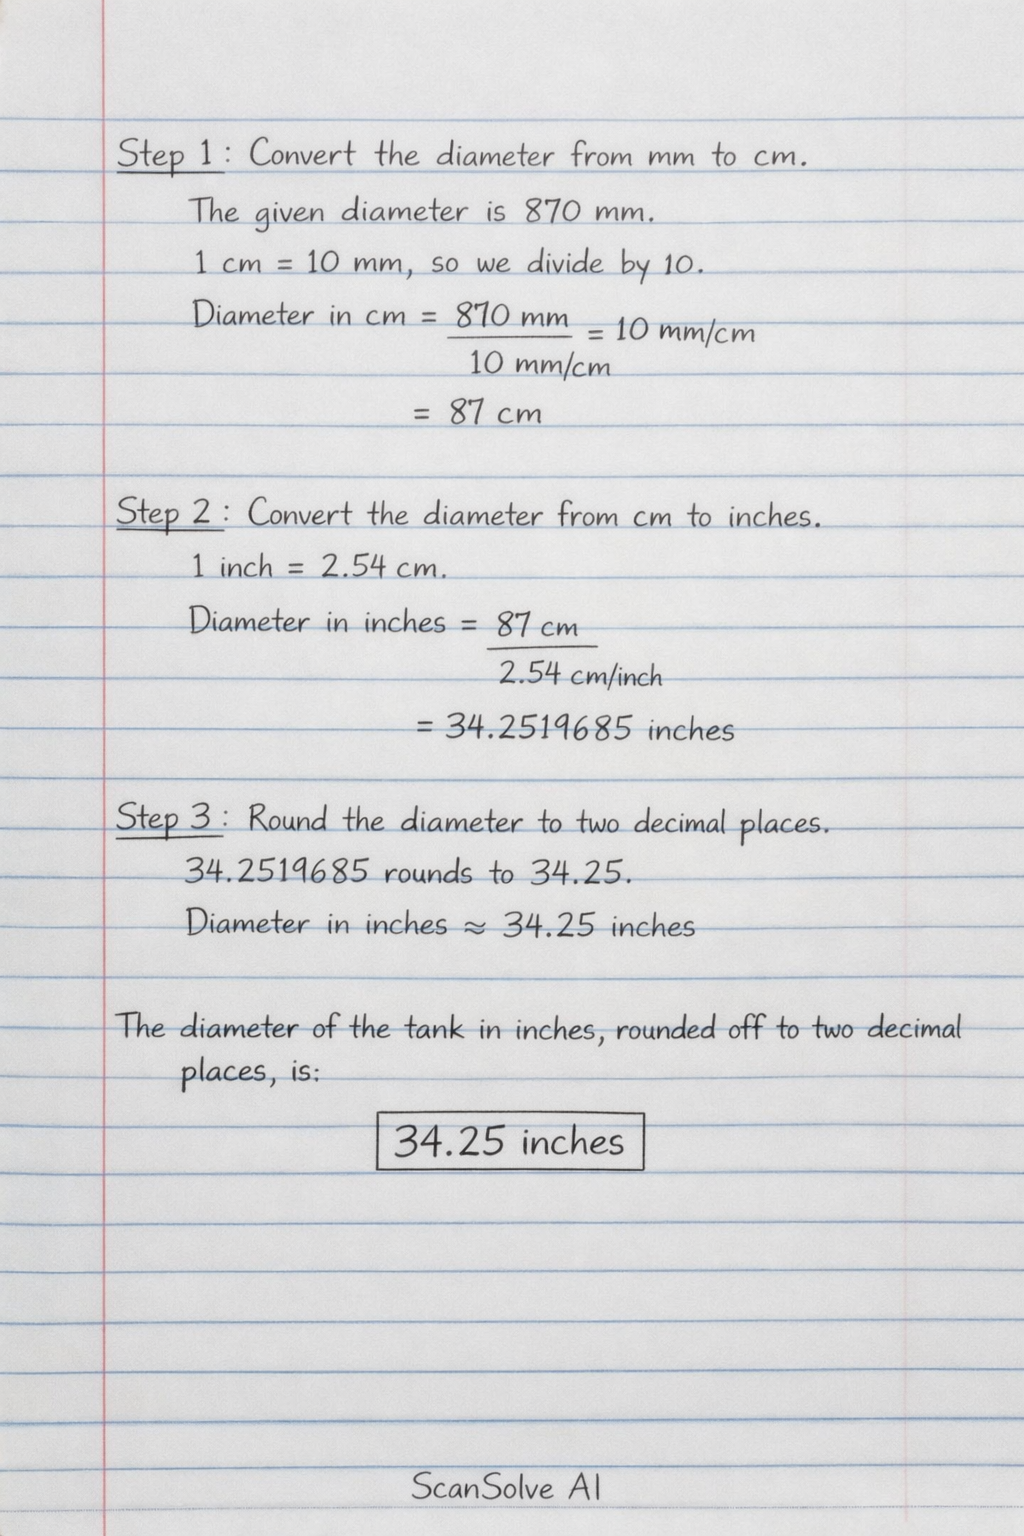 Step 1: Convert the diameter from mm to cm.
The given diameter is 870 mm.
1 cm = 10 mm, so we divide by 10.
Diameter in cm = 870 mm = 10 mm/cm
10 mm/cm
= 87 cm
Step 2: Convert the diameter from cm to inches.
1 inch = 2.54 cm.
Diameter in inches = 87 cm
2.54 cm/inch
= 34.2519685 inches
Step 3: Round the diameter to two decimal places.
34.2519685 rounds to 34.25.
Diameter in inches ≈ 34.25 inches
The diameter of the tank in inches, rounded off to two decimal
places, is:
34.25 inches
ScanSolve AI